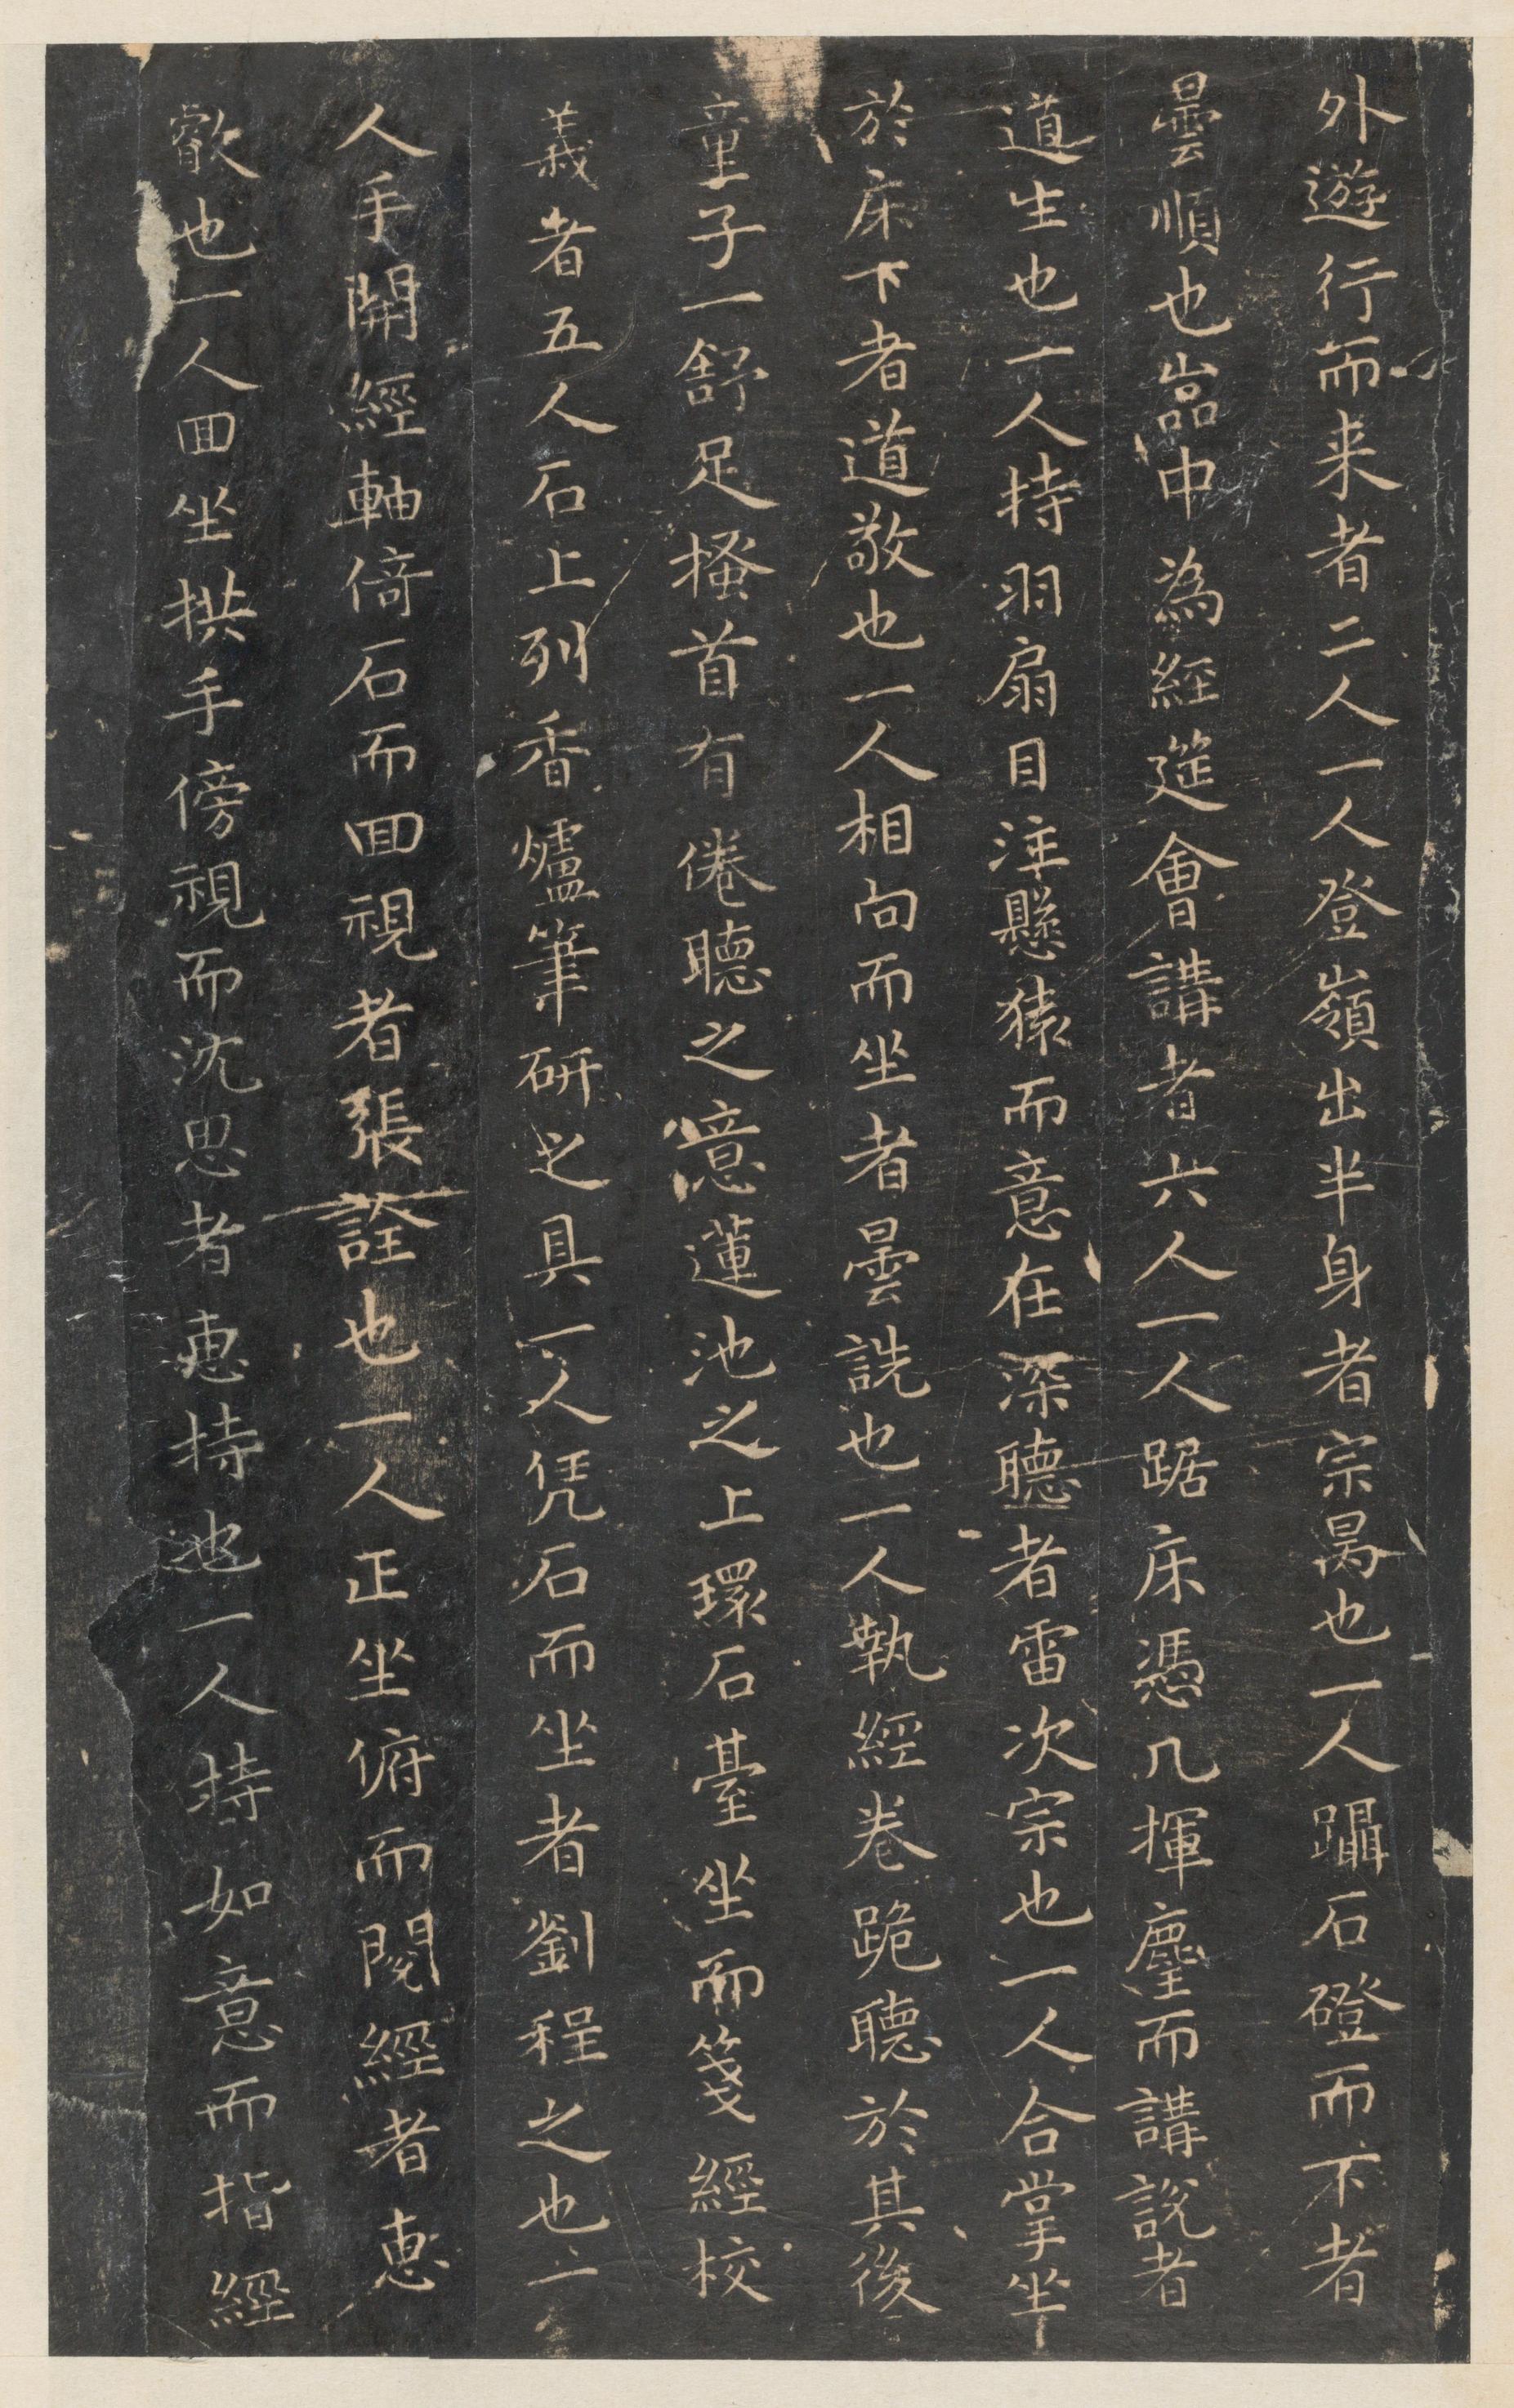 外遊行而来者二人一人登嶺出半身者宗昺也一人躡石磴而下者
曇順也嵓中為經筵會講者六人一人踞床憑几揮麈而講說者
道生也一人持羽扇目注懸猿而意在深聽者雷次宗也一人合掌坐
於床下者道敬也一人相向而坐者曇詵也一人執經卷跪聽於其後
童子一舒足搔首有倦聽之意蓮池之上環石臺坐而箋經校
義者五人石上列香爐筆研之具一人凭石而坐者劉程之也一
人手開經軸倚石而回視者張詮也一人正坐俯而閱經者惠
叡也一人回坐拱手傍視而沈思者惠持也一人持如意而指經